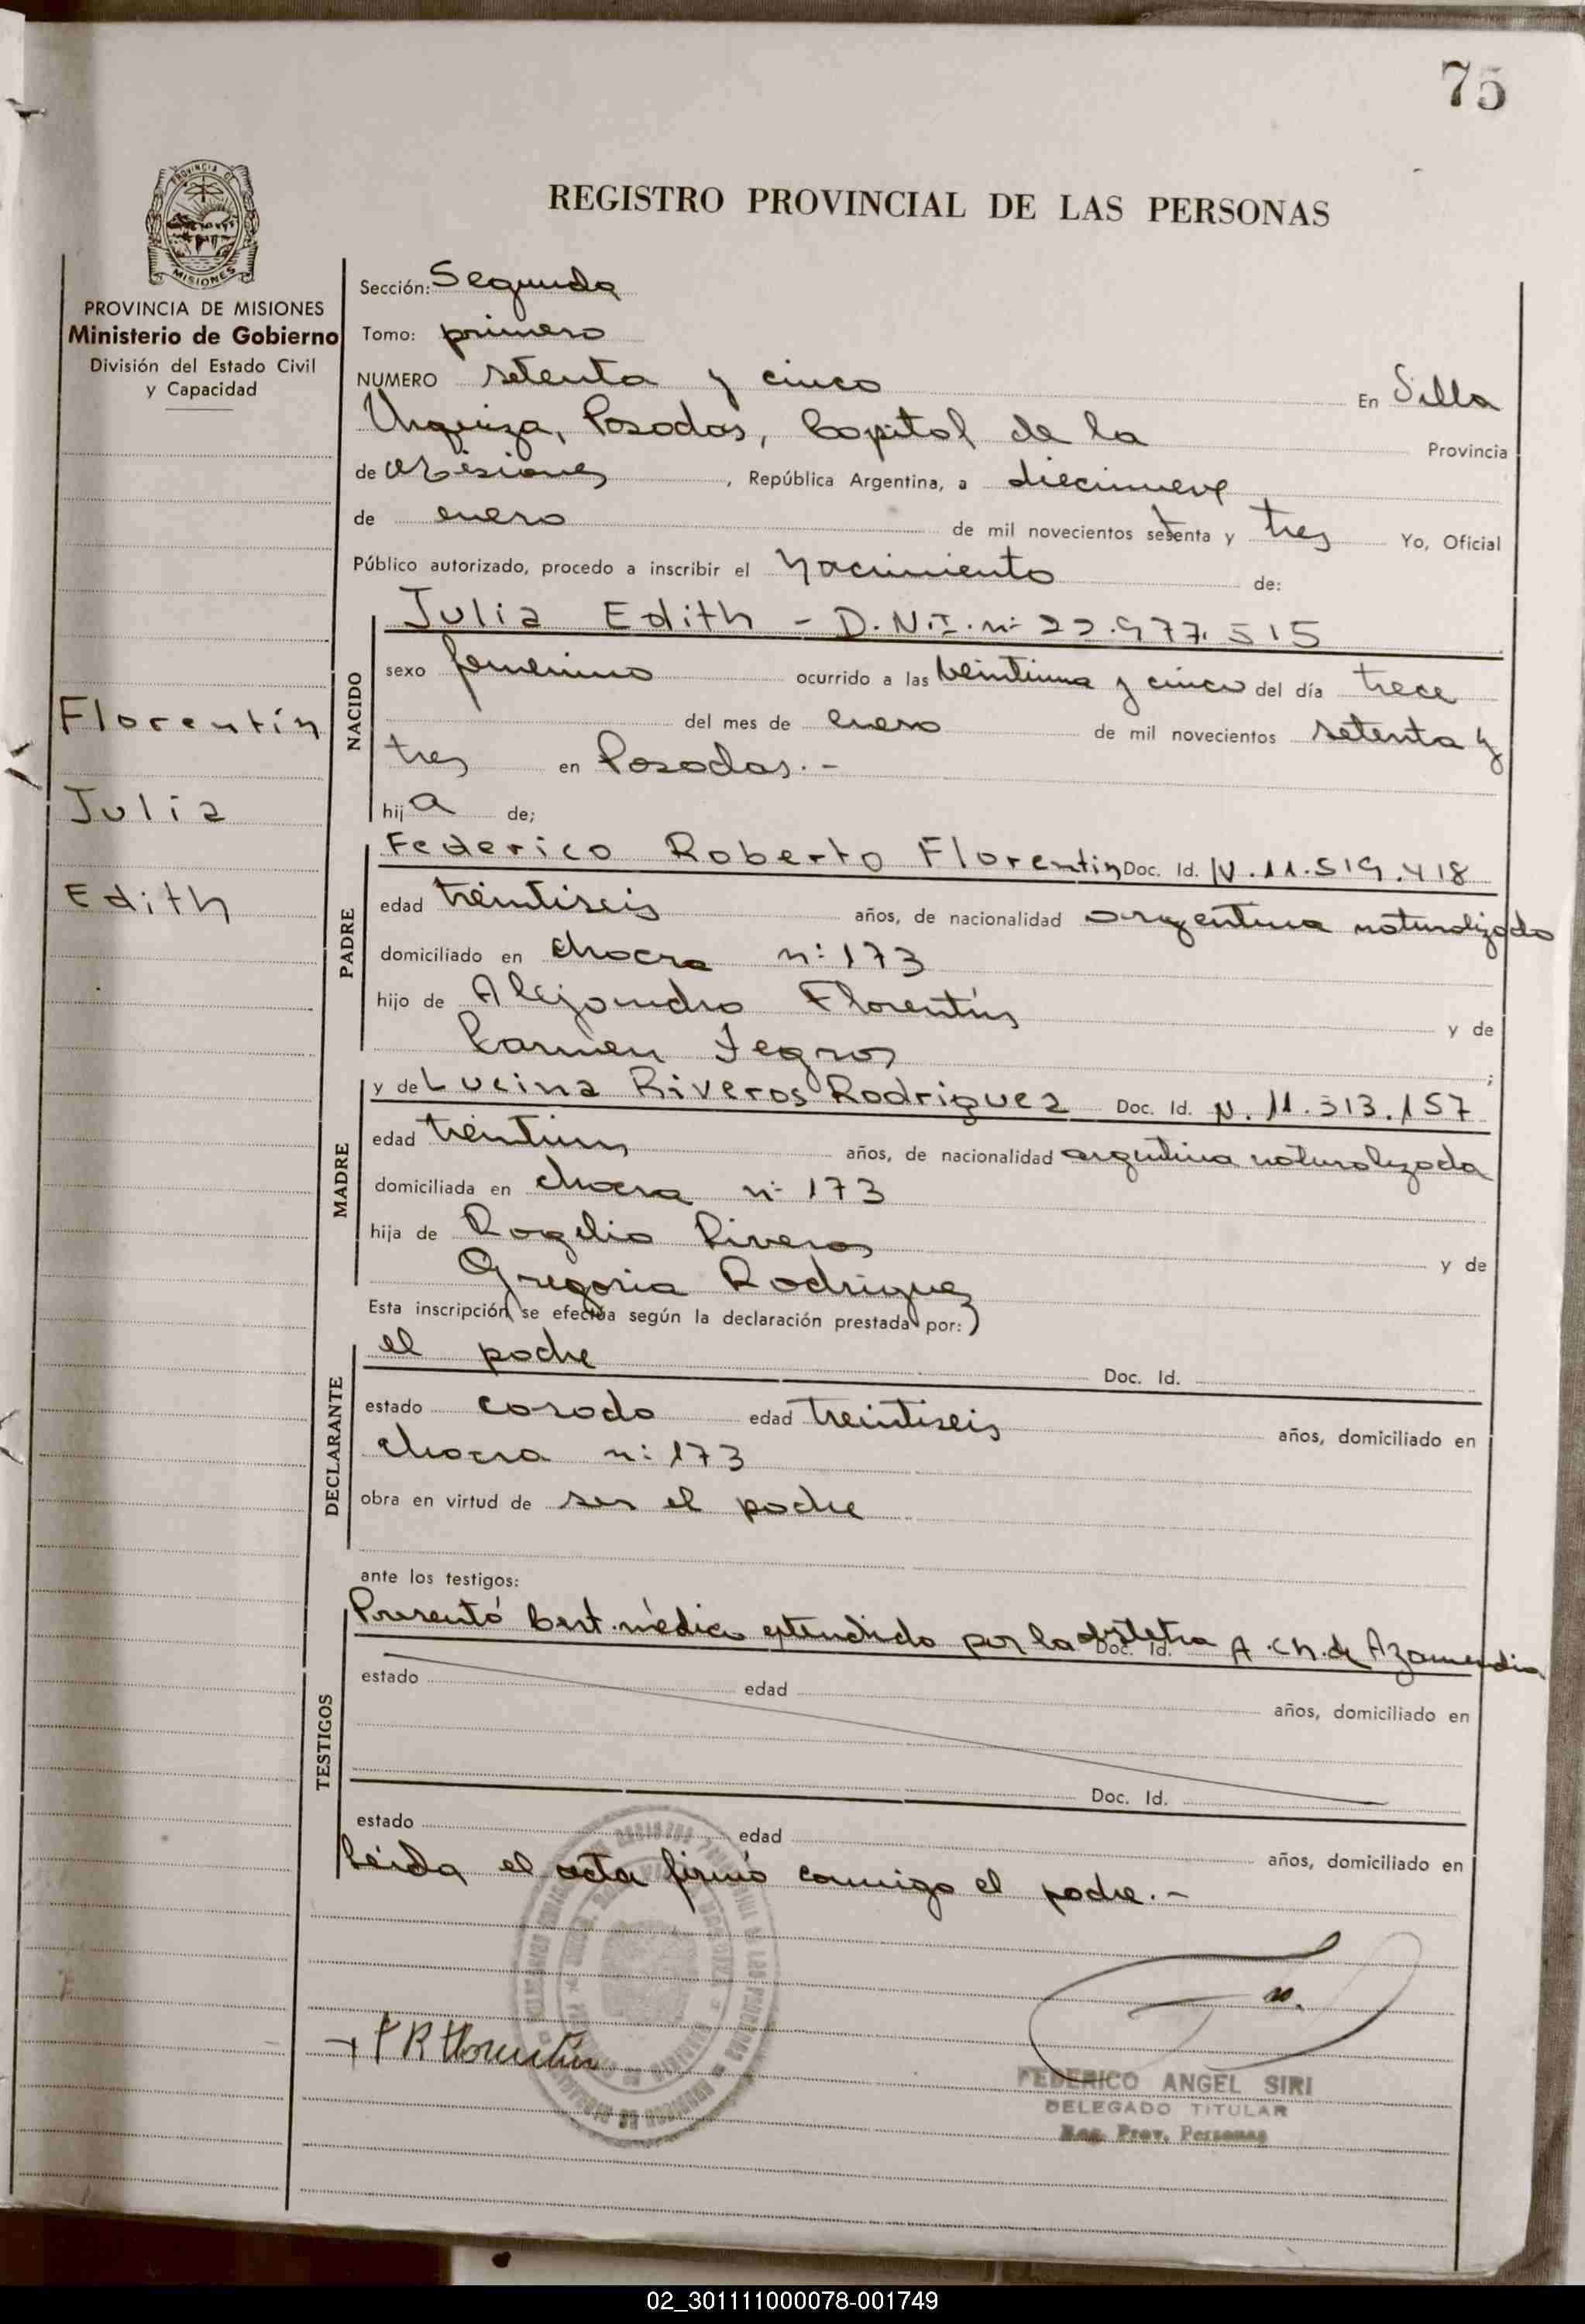 75
PROVINCIA DE
MISIONES
REGISTRO PROVINCIAL DE LAS PERSONAS
PROVINCIA DE MISIONES
Ministerio de Gobierno
División del Estado Civil
y Capacidad
Sección: Segunda
Tomo: primero
NUMERO setenta y cinco En Villa
Urquiza, Posadas, Capital de la Provincia
de Misiones, República Argentina, a diecinueve
de enero de mil novecientos setenta y tres Yo, Oficial
Público autorizado, procedo a inscribir el Nacimiento de:
Florentín
Julia
Edith
NACIDO
Julia Edith - D.N.I. nº 22.977.515
sexo femenino ocurrido a las veintiuna y cinco del día trece
del mes de enero de mil novecientos setenta y
tres en Posadas.-
hija de;
PADRE
Federico Roberto Florentin Doc. Id. N.11.519.418
edad treintiseis años, de nacionalidad argentina naturalizado
domiciliado en chacra nº 173
hijo de Alejandro Florentín y de
Carmen Fegros;
MADRE
y de Lucina Riveros Rodriguez Doc. Id. N.11.313.157
edad treintiun años, de nacionalidad argentina naturalizada
domiciliada en chacra nº 173
hija de Rogelio Riveros y de
Gregoria Rodriguez
Esta inscripción se efectúa según la declaración prestada por:
DECLARANTE
el padre Doc. Id.
estado casado edad treintiseis años, domiciliado en
chacra nº 173
obra en virtud de ser el padre
ante los testigos:
TESTIGOS
Presentó Cert. médico extendido por la obstetra Doc. Id. A. Ch. de Azamendia
estado edad años, domiciliado en
Doc. Id.
estado edad años, domiciliado en
Leída el acta firmó conmigo el padre.-
F R Florentín
FEDERICO ANGEL SIRI
DELEGADO TITULAR
Reg. Prov. Personas
02_301111000078-001749